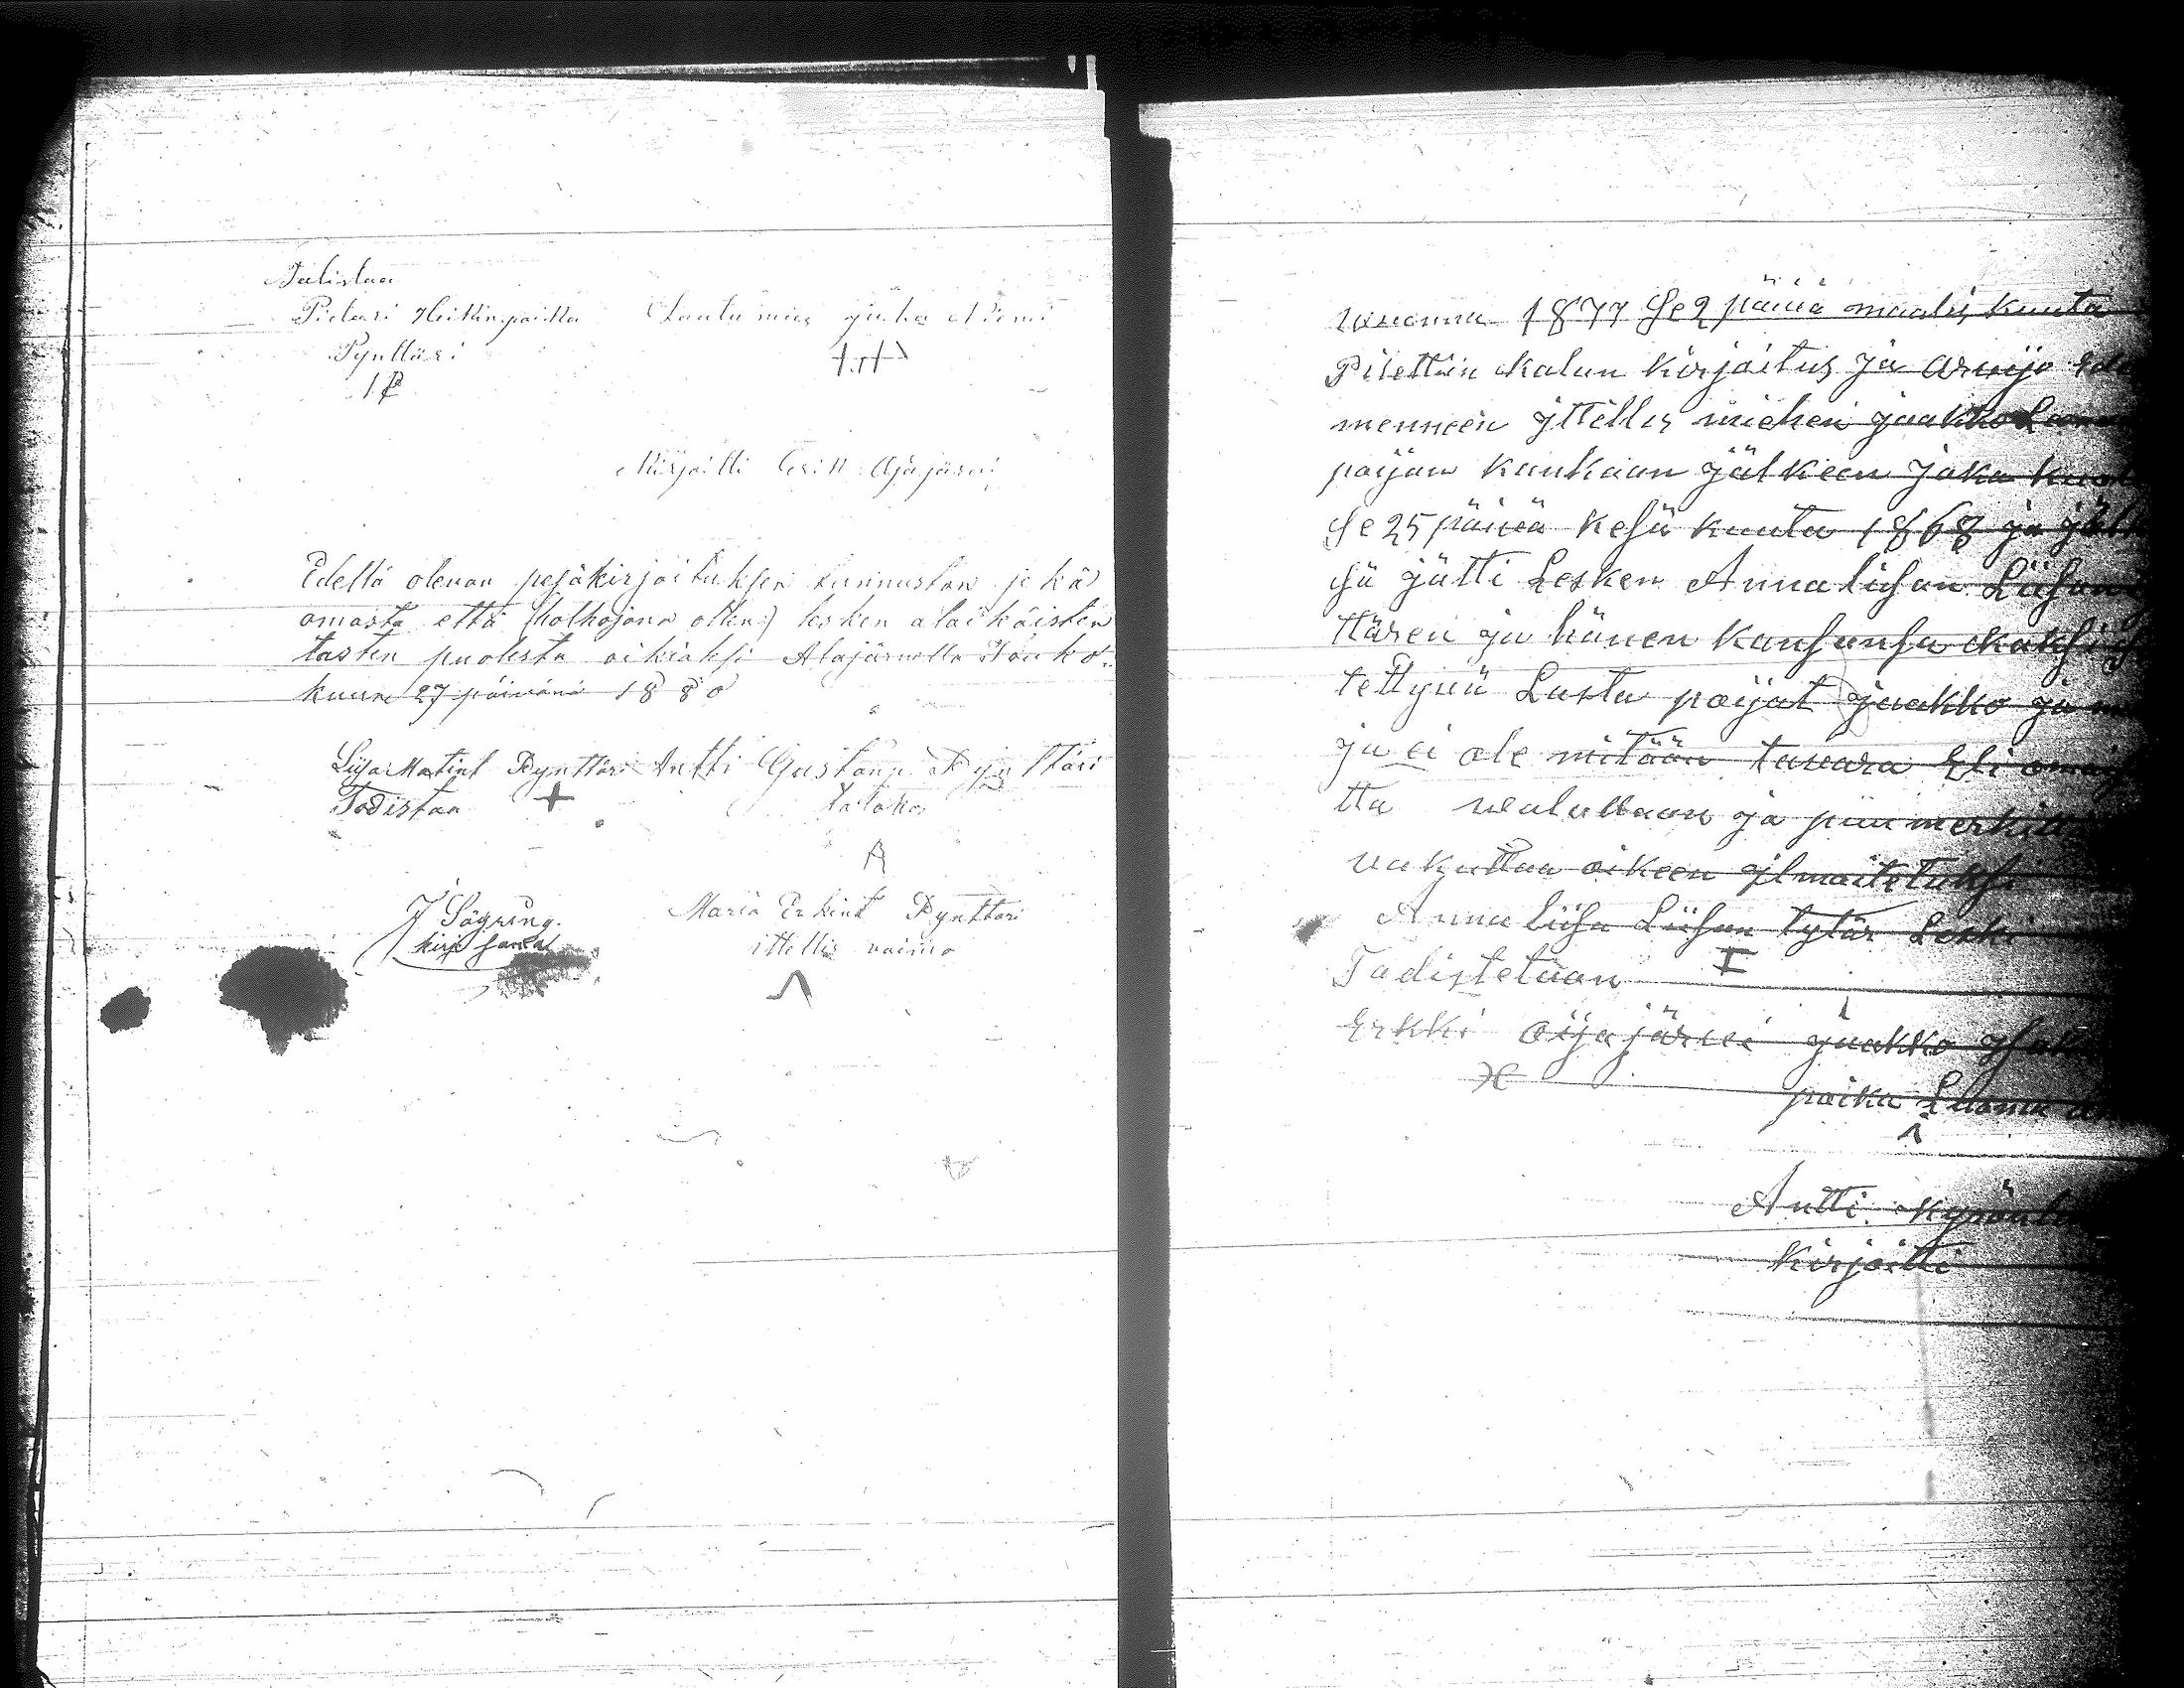 Todistaa
Pietari Heikinpoika Lautamies Juha Niemi
Pynttäri
Kirjoitti Erik Ojajärvi
Edellä olevan pesäkirjoituksen tunnustan sekä
omasta että (holhojana ollen) lesken alaikäisten
lasten puolesta oikiaksi Alajärvellä Touko-
kuun 27 päivänä 1880
Liisa Matint Pynttäri Antti Gustanp. Pynttäri
Todistaa + talokas
J Sägring. Maria Erkint Pynttäri
ittellis vaimo
wuonna 1877 Se 2 päivä maalis kuuta
Pitettiin kalun kirjoitus ja arwijo
menneen jttellis miehen jaakko
poijan kankaan jälkeen joka
Se 25 päivä kesä kuuta 1868 ja
sä jätti Lesken Anna liisan Liisan
ttären ja hänen kansansa kaksi
tettywä Lasta poijat jaakko ja
ja ei ole mitään tawara Eli
tta walallaan ja puumerkill
vakuttaa oikeen jlmoitetuksi
Anna liisa Liisan tytär Leski
Todistetaan I
Erkki oijajärwi jaakko
poika Luoma
Antti
kirjoitti